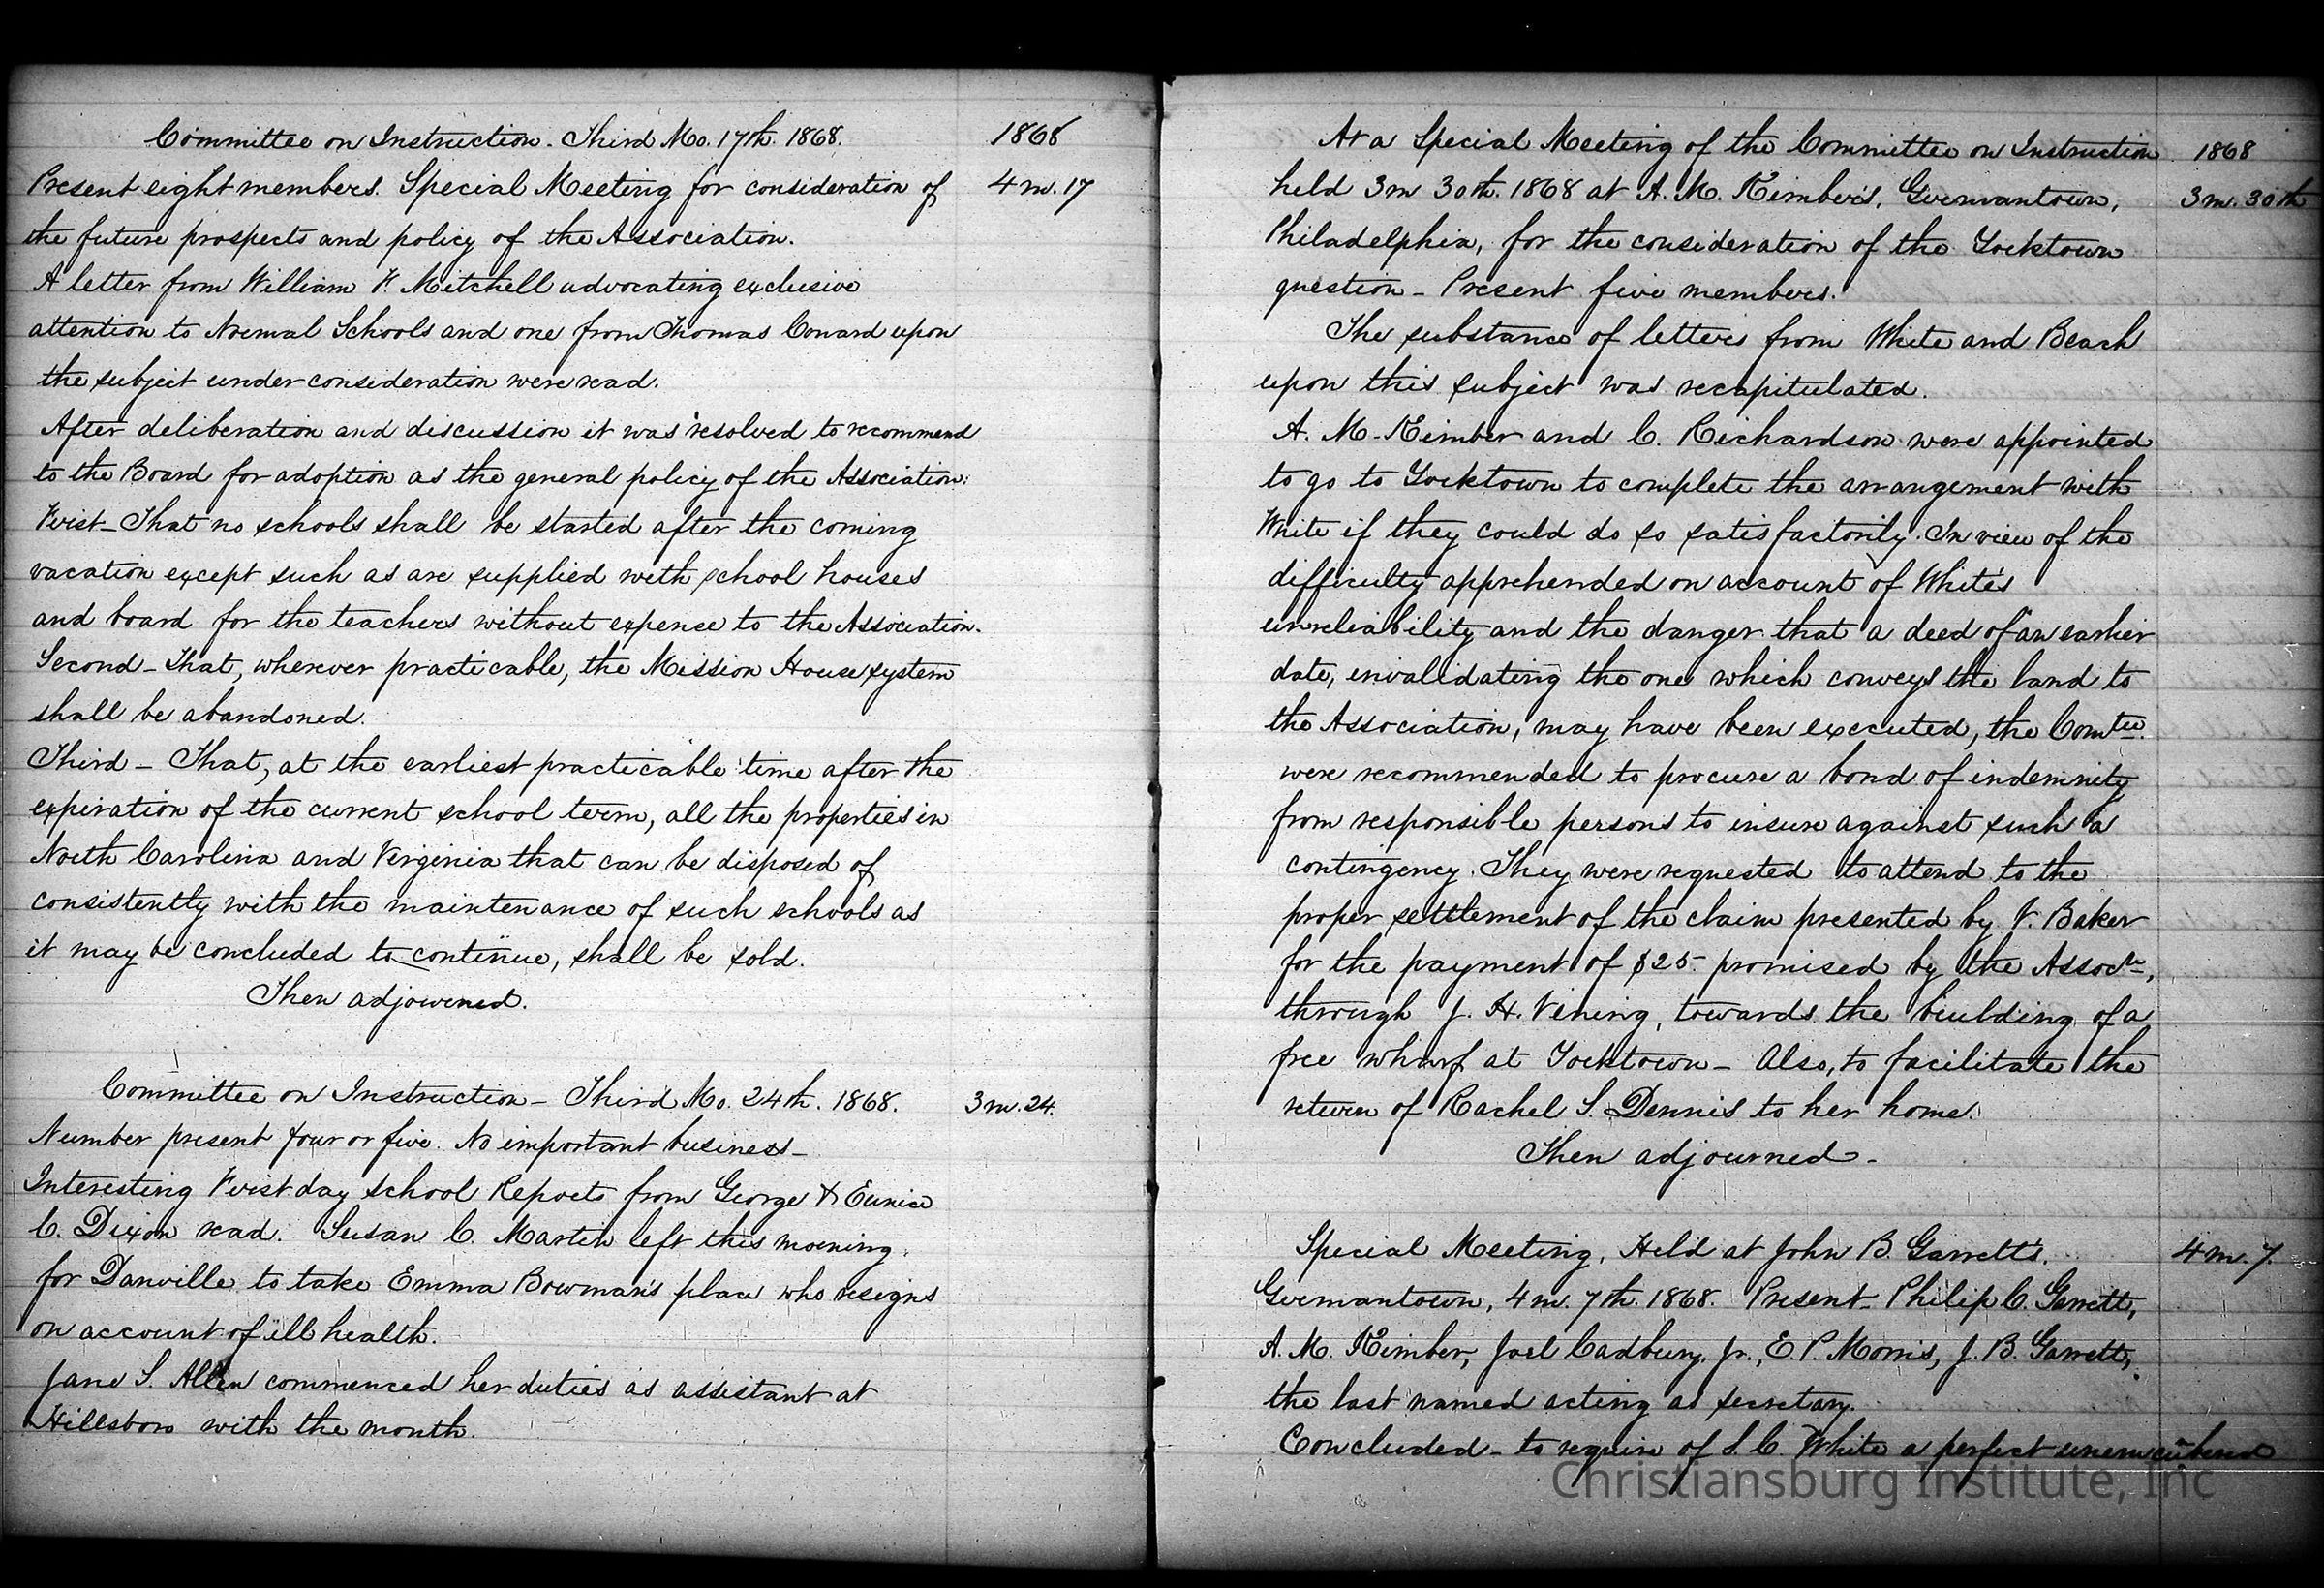 Committee on Instruction - Third Mo. 17th. 1868.
1868
Present eight members. Special Meeting for consideration of
4 m. 17
the future prospects and policy of the Association.
A letter from William F. Mitchell advocating exclusive
attention to Normal Schools and one from Thomas Conard upon
the subject under consideration were read.
After deliberation and discussion it was resolved to recommend
to the Board for adoption as the general policy of the Association:
First - That no schools shall be started after the coming
vacation except such as are supplied with school houses
and board for the teachers without expense to the Association.
Second - That, wherever practicable, the Mission House system
shall be abandoned.
Third - That, at the earliest practicable time after the
expiration of the current school term, all the properties in
North Carolina and Virginia that can be disposed of
consistently with the maintenance of such schools as
it may be concluded to continue, shall be sold.
Then adjourned.
Committee on Instruction - Third Mo. 24th. 1868.
3 m. 24.
Number present four or five. No important business -
Interesting First day school Reports from George & Eunice
C. Dixon read. Susan C. Martin left this morning
for Danville to take Emma Bowman's place who resigns
on account of ill health.
Jane S. Allen commenced her duties as assistant at
Hillsboro with the month.
At a Special Meeting of the Committee on Instruction
1868
held 3m 30th. 1868 at A. M. Kimber's, Germantown,
3 m. 30th
Philadelphia, for the consideration of the Yorktown
question - Present five members.
The substance of letters from White and Beach
upon this subject was recapitulated.
A. M. Kimber and C. Richardson were appointed
to go to Yorktown to complete the arrangement with
White if they could do so satisfactorily. In view of the
difficulty apprehended on account of White's
unreliability and the danger that a deed of an earlier
date, invalidating the one which conveys the land to
the Association, may have been executed, the Comtee.
were recommended to procure a bond of indemnity
from responsible persons to insure against such a
contingency. They were requested to attend to the
proper settlement of the claim presented by F. Baker
for the payment of $25. promised by the Assocn.,
through J. H. Vining, towards the building of a
free wharf at Yorktown - Also, to facilitate the
return of Rachel S. Dennis to her home.
Then adjourned -
Special Meeting, Held at John B. Garrett's.
4 m. 7.
Germantown, 4 m. 7th. 1868. Present - Philip C. Garrett,
A. M. Kimber, Joel Cadbury, Jr., E. P. Morris, J. B. Garrett,
the last named acting as secretary.
Concluded - to require of S. C. White a perfect unemcubered
Christiansburg Institute, Inc